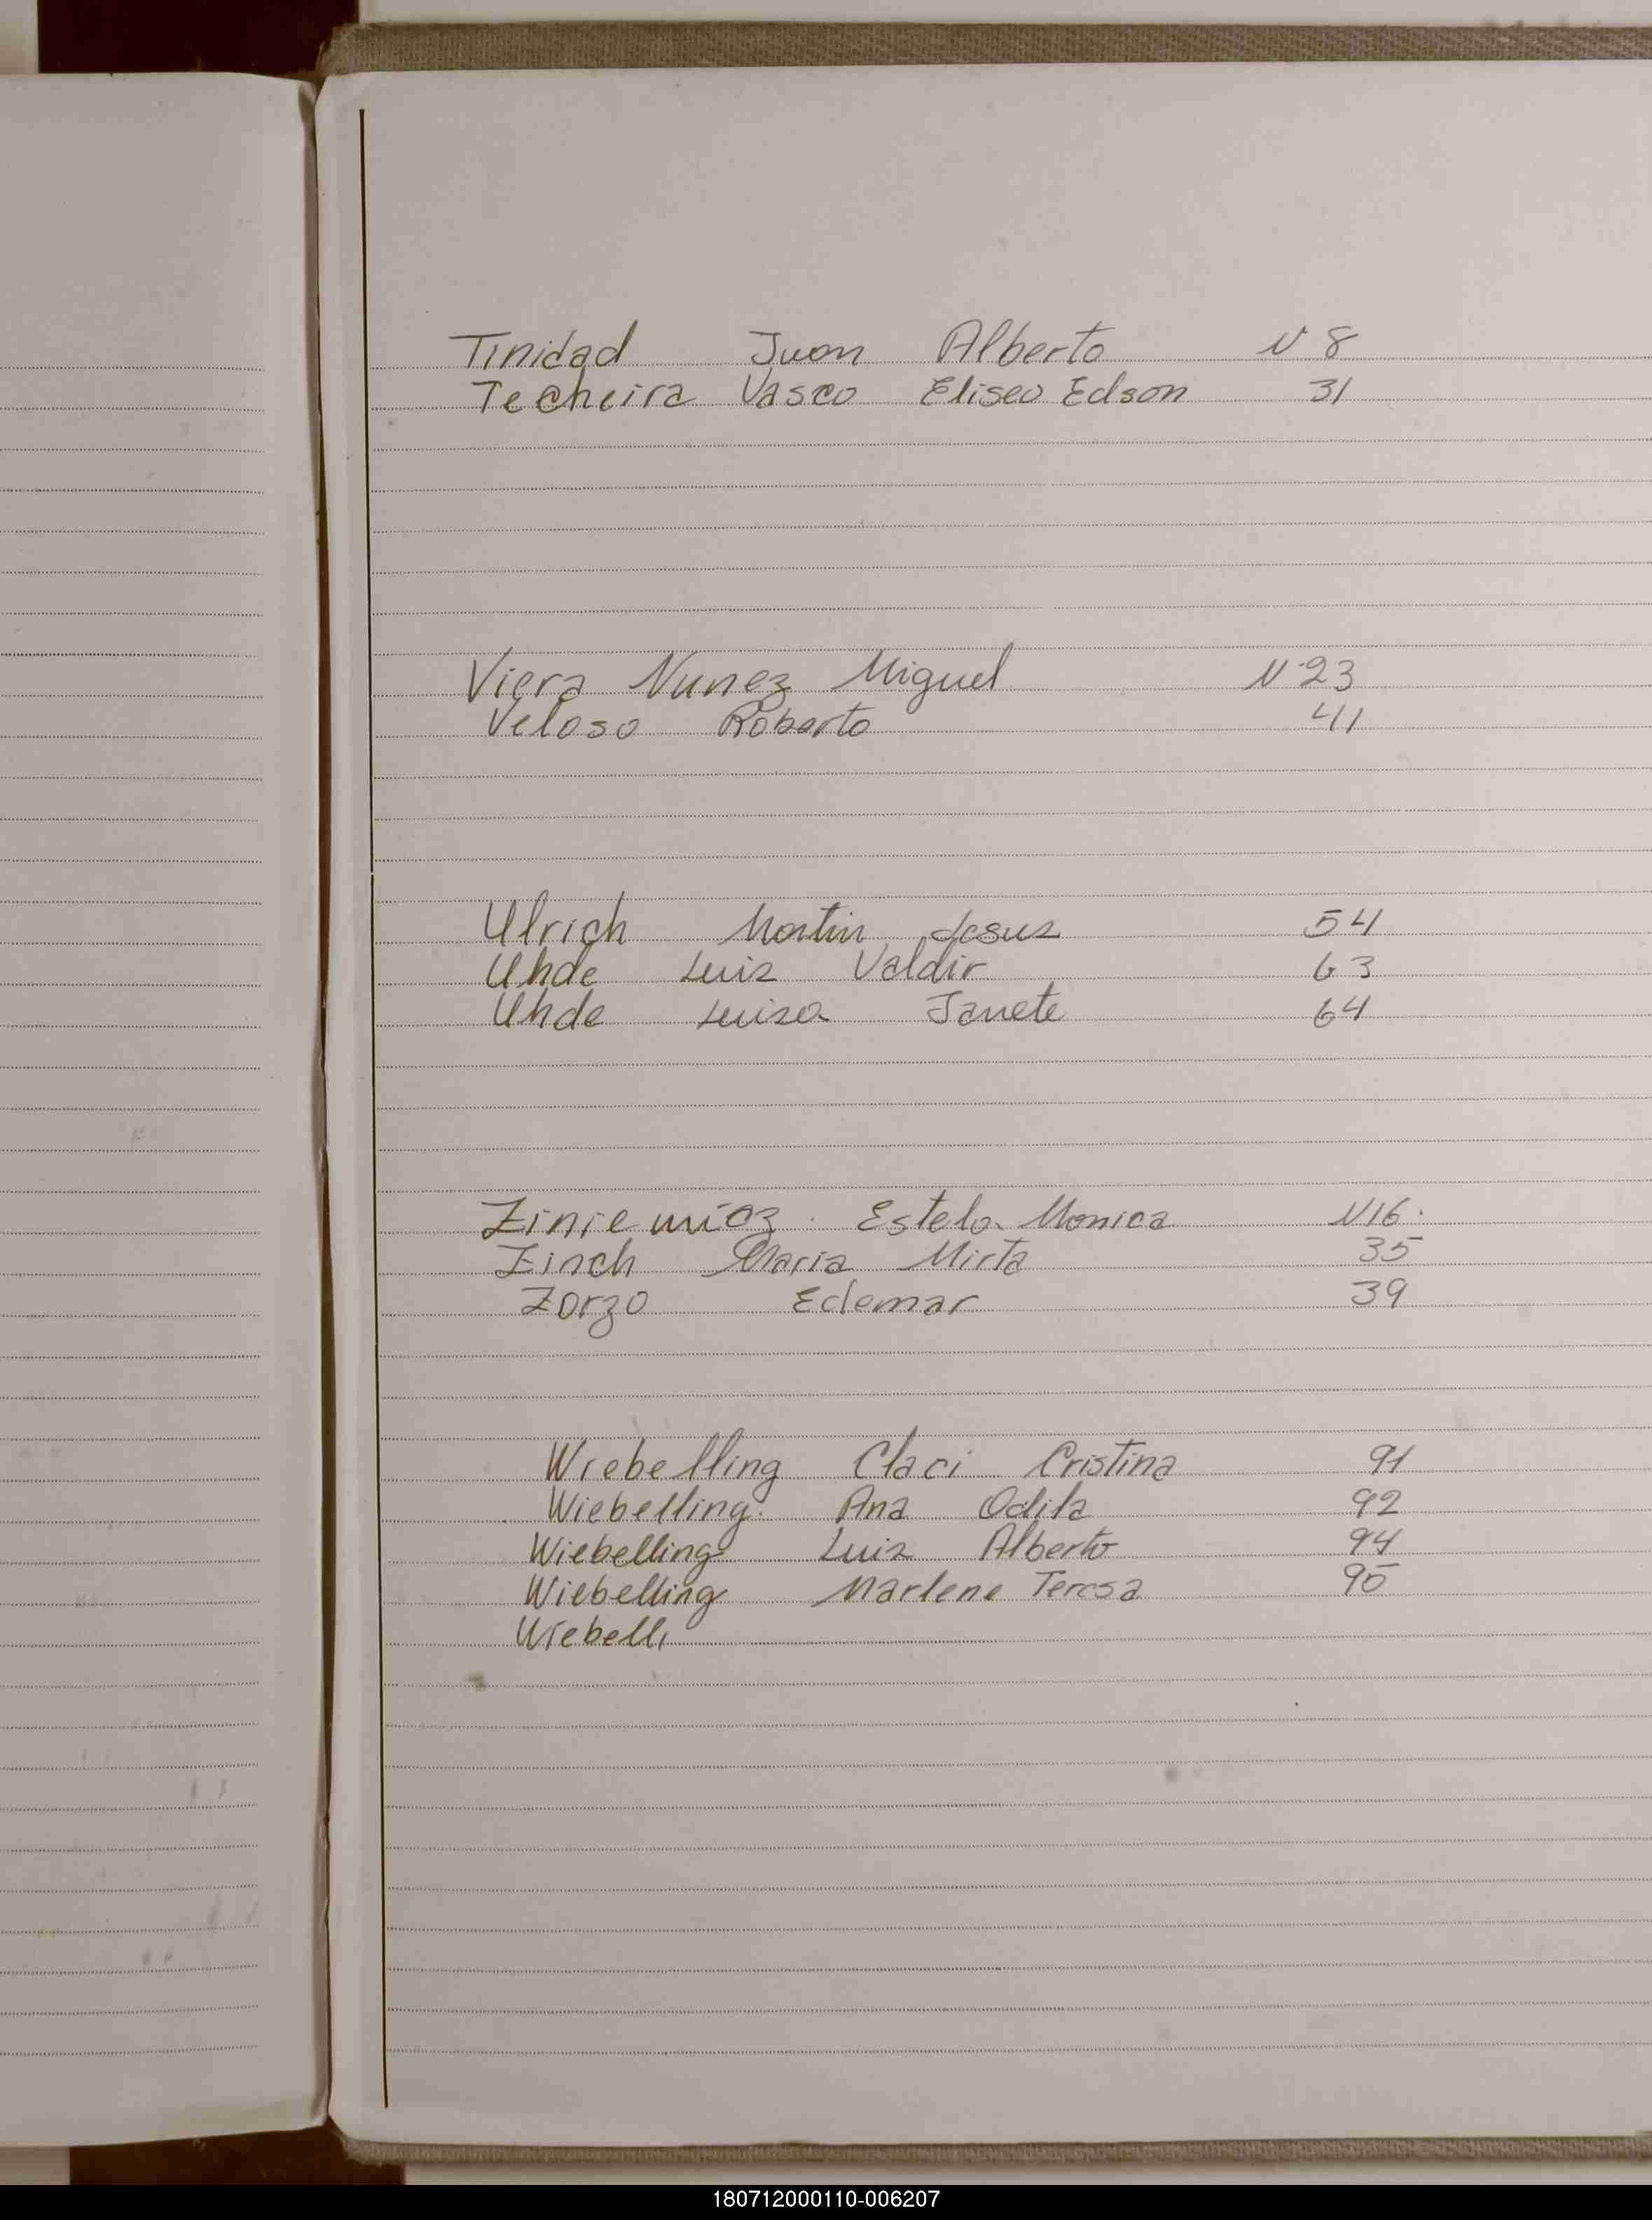 Tinidad Juan Alberto N 8
Techeira Vasco Eliseo Edson 31
Viera Nunez Miguel N 23
Veloso Roberto 41
Ulrich Martin Jesus 54
Uhde Luiz Valdir 63
Uhde Luiza Janete 64
Ziniewicz Estela Monica N16.
Zinch Maria Mirta 35
Zorzo Edemar 39
Wiebelling Claci Cristina 91
Wiebelling Ana Odila 92
Wiebelling Luiz Alberto 94
Wiebelling Marlene Teresa 95
Wiebelli
180712000110-006207